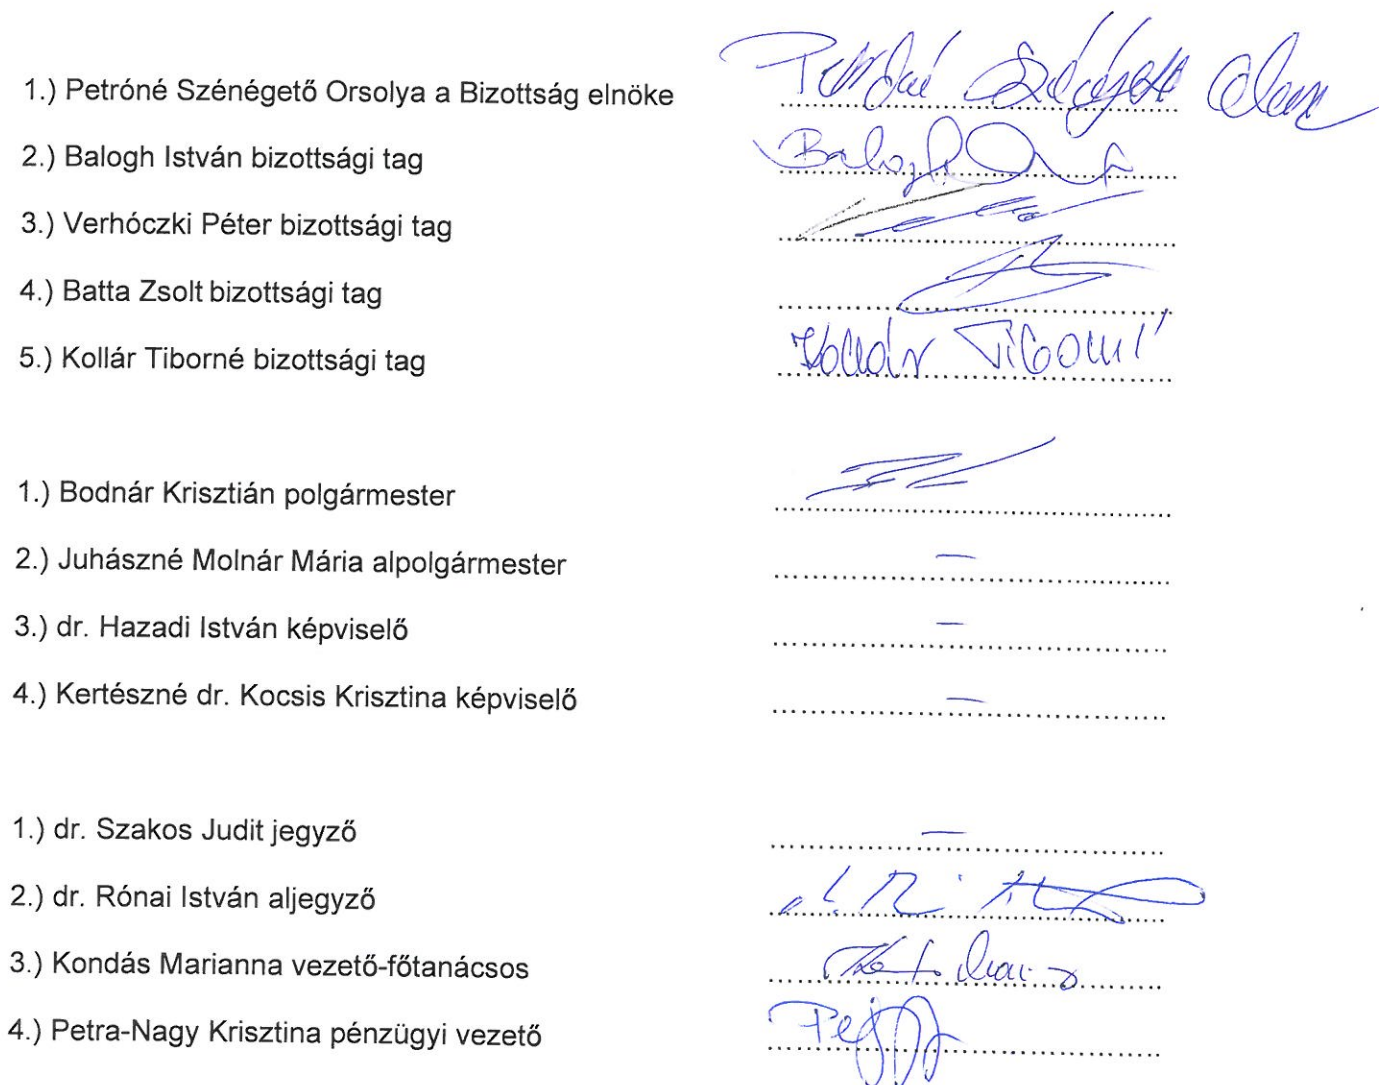 1.) Petróné Szénégető Orsolya a Bizottság elnöke
2.) Balogh István bizottsági tag Balogh
3.) Verhóczki Péter bizottsági tag
4.) Batta Zsolt bizottsági tag
5.) Kollár Tiborné bizottsági tag Kollár Tiborné
1.) Bodnár Krisztián polgármester
2.) Juhászné Molnár Mária alpolgármester –
3.) dr. Hazadi István képviselő –
4.) Kertészné dr. Kocsis Krisztina képviselő –
1.) dr. Szakos Judit jegyző –
2.) dr. Rónai István aljegyző
3.) Kondás Marianna vezető-főtanácsos
4.) Petra-Nagy Krisztina pénzügyi vezető